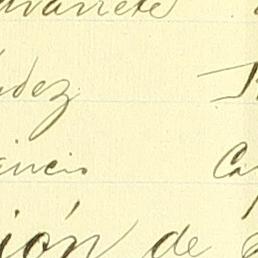 avarrete
udez
ancis Ca
ión de